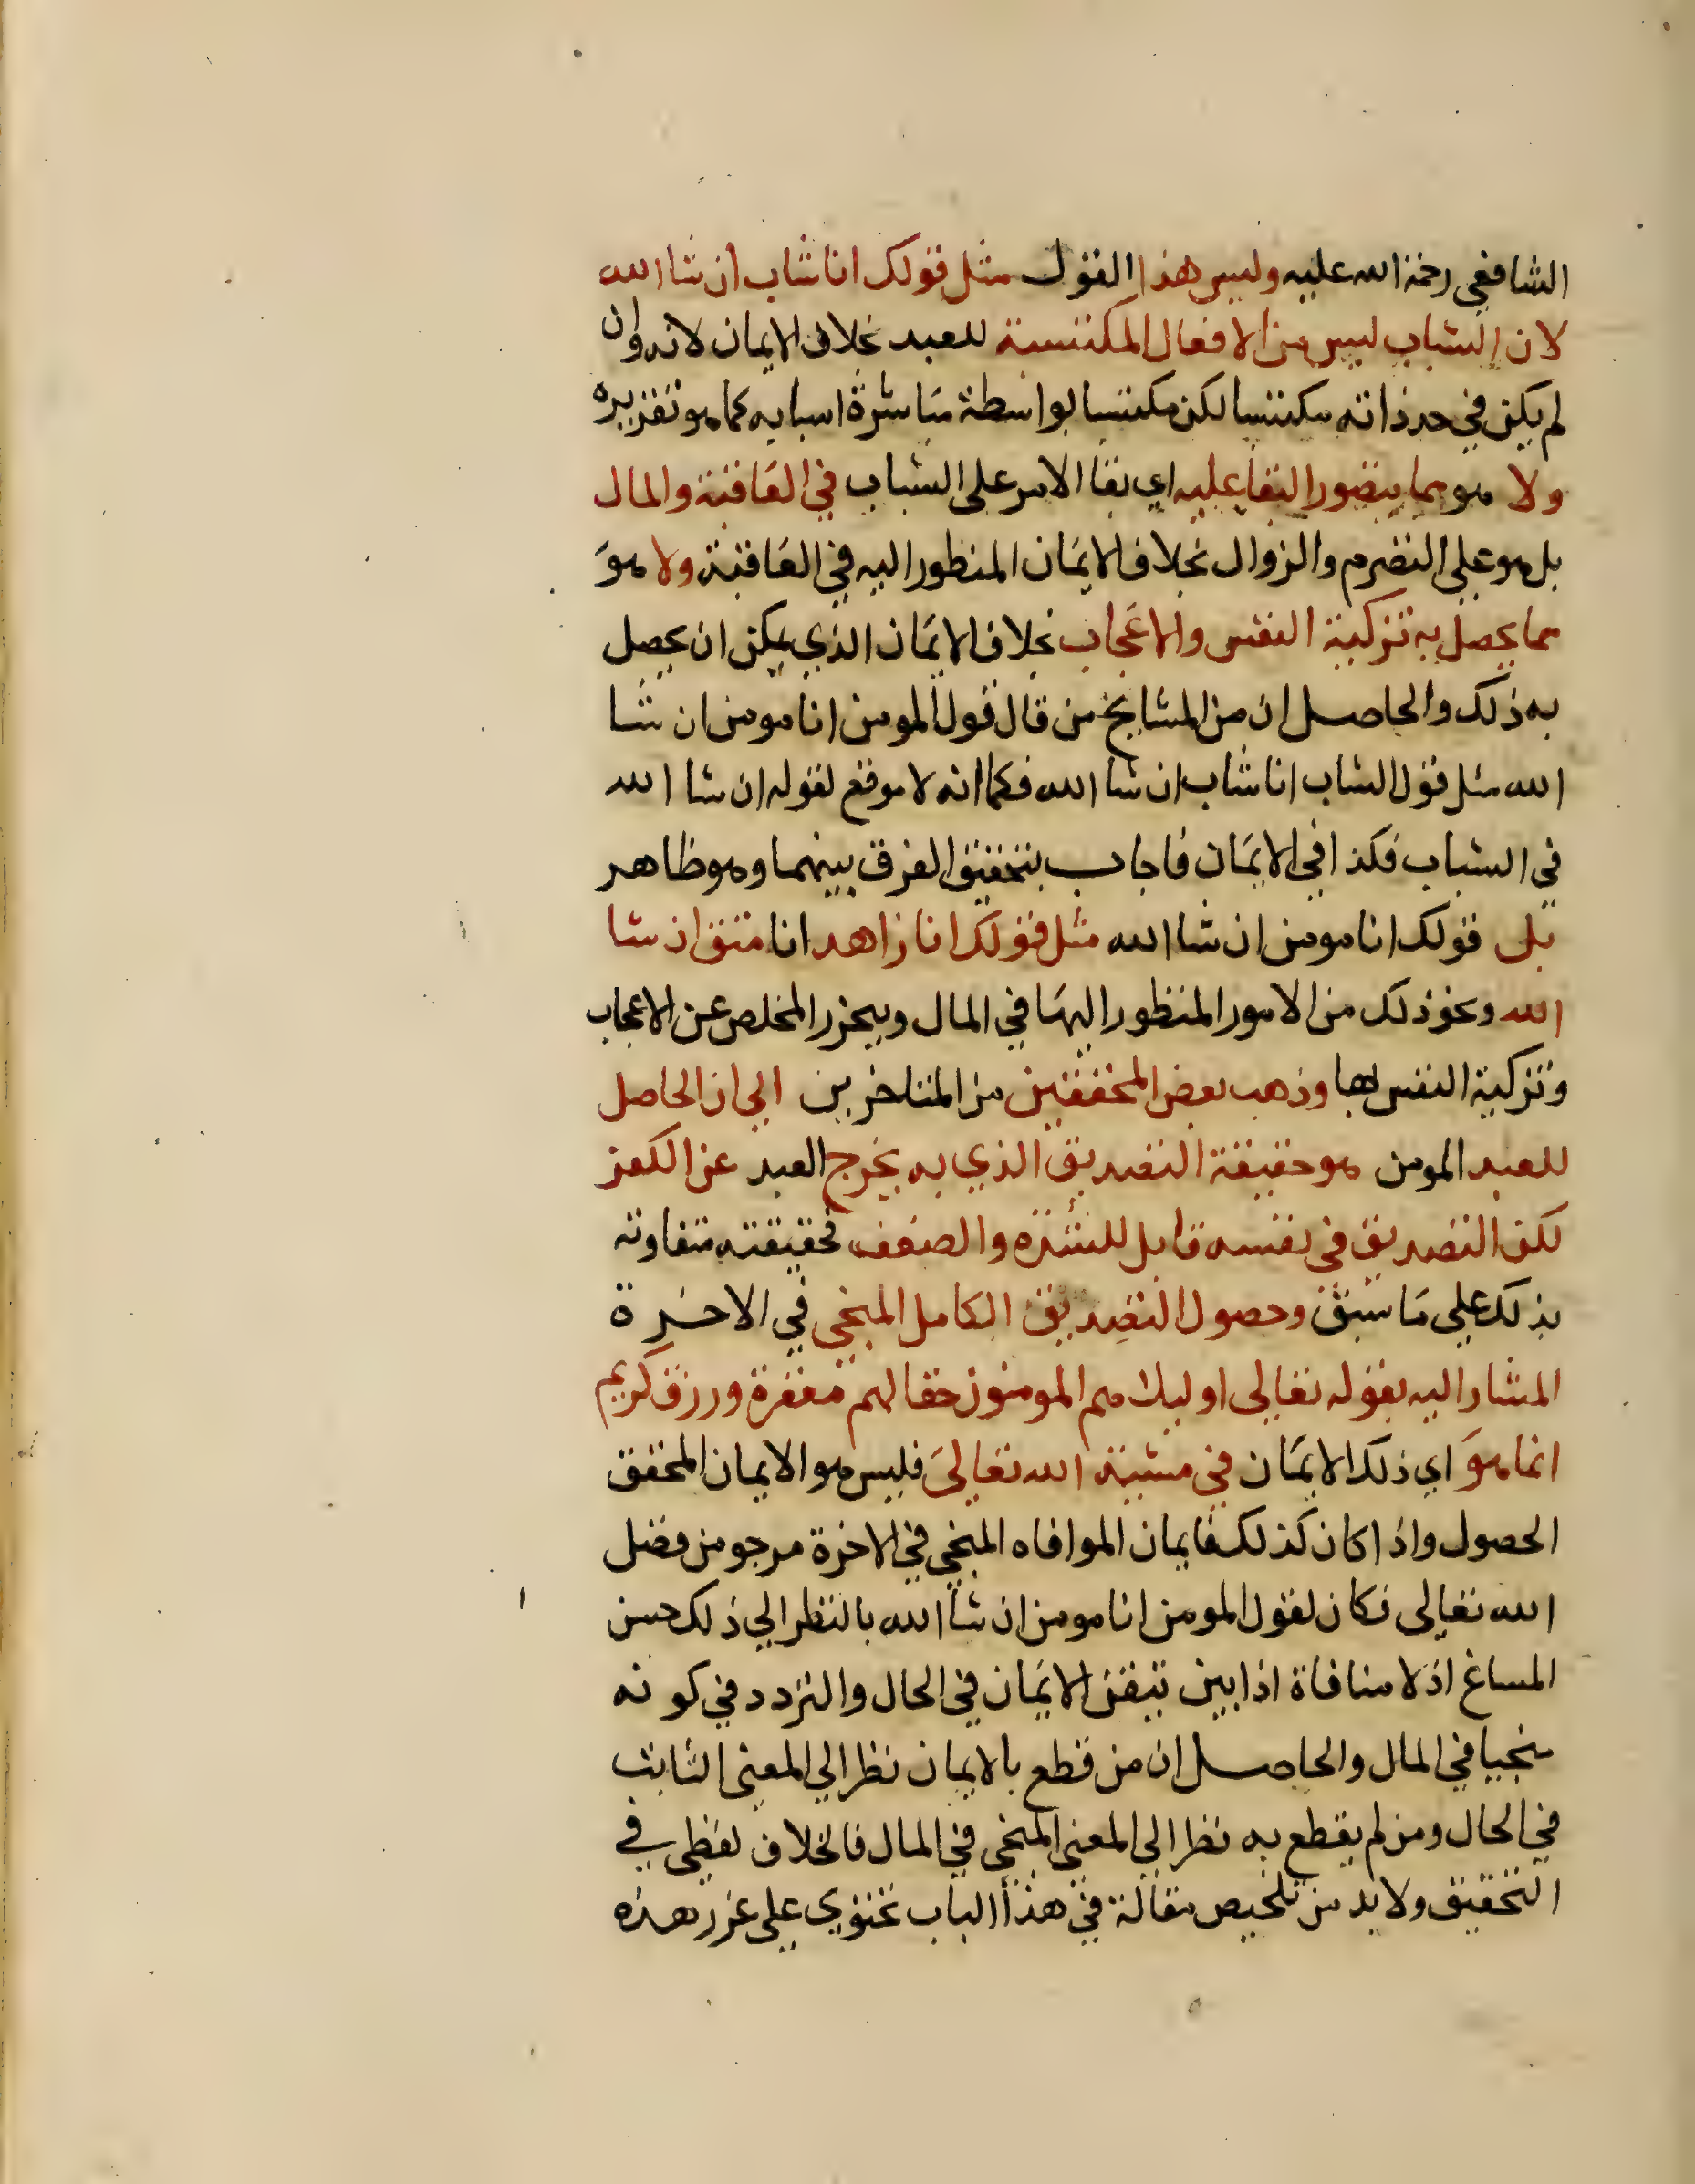 الشافعي رحمة الله عليه وليس هذا القول مثل قولك انا شاب ان شا الله
لان الشباب ليس من الافعال المكتسبة للعبد بخلاف الايمان لانه وان
لم يكن في حد ذاته مكتسبا لكن مكتسبا بواسطة مباشرة اسبابه كما هو تقريره
ولا هو مما يتصور البقا عليه اي بقا الامر على الشباب في العاقبة والمال
بل هو على التصرم والزوال بخلاف الايمان المنظور اليه في العاقبة ولا هو
مما يحصل به تزكية النفس والاعجاب بخلاف الايمان الذي يمكن ان يحصل
به ذلك والحاصل ان من المشايخ من قال قول المومن انا مومن ان شا
الله مثل قول الشاب انا شاب ان شا الله فكما انه لا موقع لقوله ان شا الله
في الشباب فكذا في الايمان فاجاب بتحقيق الفرق بينهما وهو ظاهر
بل قولك انا مومن ان شا الله مثل قولك انا زاهد انا متق ان شا
الله ونحو ذلك من الامور المنظور اليها في المال ويحزر المخلص عن الاعجاب
وتزكية النفس لها وذهب بعض المحققين من المتاخرين الي ان الحاصل
للعبد المومن هو حقيقة التصديق الذي به يخرج العبد عن الكفر
لكن التصديق في نفسه قابل للشدة والضعف فحقيقته متفاوته
بذلك علي ما سبق وحصول التصديق الكامل المنجي في الاخرة
المشار اليه بقوله تعالى اوليك هم المومنون حقا لهم مغفرة ورزق كريم
انما هو اي ذلك الايمان في مشية الله تعالى فليس هو الايمان المحقق
الحصول واذا كان كذلك فايمان الموافاه المنجي في الاخرة مرجو من فضل
الله تعالى فكان لقول المومن انا مومن ان شا الله بالنظر الي ذلك حسن
المساغ اذ لا منافاة اذا بين تيقن الايمان في الحال والتردد في كونه
منجيا في المال والحاصل ان من قطع بالايمان نظر الي المعنى الثابت
في الحال ومن لم يقطع به نظر الي المعنى المنجي في المال فالخلاف لفظي في
التحقيق ولا بد من تلخيص مقالة في هذا الباب تحتوي علي غرر هذه